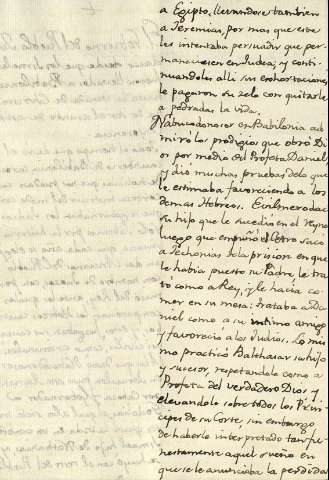 a Egipto, llevandose tambien
a Jeremias, por mas que este
les intentaba persuadir que per
maneciesen en Judea; y conti
nuandoles alli sus exhortaciones,
le pagaron su zelo con quitarle
a pedradas la vida.
Nabucodonosor en Babilonia ad
miró los prodigios que obró Di
os por medio del Profeta Daniel,
y dio muchas pruebas de lo que
le estimaba favoreciendo a los
demas Hebreos. Evilmerodac
su hijo que le sucedió en el Reyno
luego que empuñó el Cetro saco
a Jechonias de la prision en que
le habia puesto su Padre, le tra
to como a Rey, y le hacia co
mer en su mesa: trataba a Da
niel como a su intimo amigo
y favoreció a los Judios. Lo mis
mo practicó Balthasar su hijo
y sucesor, respetandole como a
Profeta del verdadero Dios y
elevandole sobre todos los Prin
cipes de su Corte, sin embargo
de haberle interpretado tan fu
nestamente aquel sueño en
que se le anunciaba la perdida